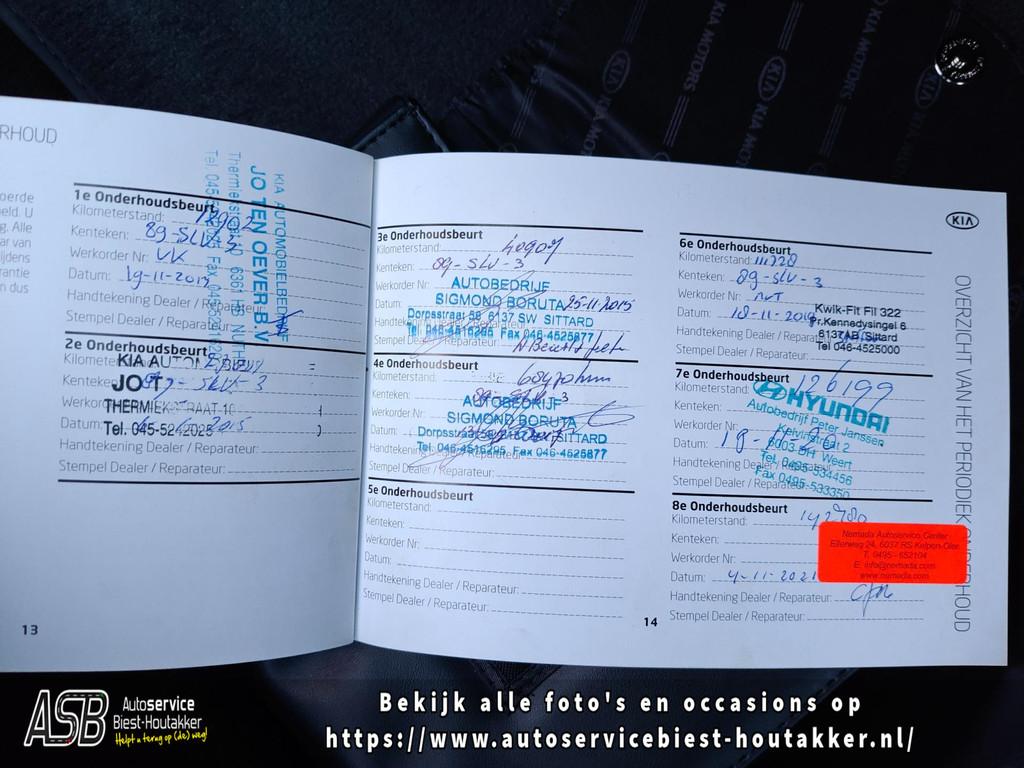 RHOUD
oerde
eld. U
g. Alle
ar van
ijdens
rantie
n dus
1e Onderhoudsbeurt
Kilometerstand:
Kenteken: 89-SLV-3
Werkorder Nr: VK
Datum: 19-11-2013
Handtekening Dealer / Reparateur:
Stempel Dealer / Reparateur:
KIA AUTOMOBIELBEDRIJF
JO TEN OEVER B.V.
2e Onderhoudsbeurt
KIA AUTOM
Kenteken: 89-SLV-3
JO T
THERMIEKSTRAAT 10
Tel. 045-5242025
Datum:
Handtekening Dealer / Reparateur:
Stempel Dealer / Reparateur:
13
3e Onderhoudsbeurt
Kilometerstand: 40907
Kenteken: 89-SLV-3
Werkorder Nr:
AUTOBEDRIJF
SIGMOND BORUTA
Datum: 25-11-2015
Dorpsstraat 58 6137 SW SITTARD
Tel. 046-4516295 Fax 046-4525877
Stempel Dealer / Reparateur:
4e Onderhoudsbeurt
Kilometerstand:
Kenteken:
AUTOBEDRIJF
Werkorder Nr:
SIGMOND BORUTA
Datum:
SITTARD
Tel. 046-4516295 Fax 046-4525877
Stempel Dealer / Reparateur:
5e Onderhoudsbeurt
Kilometerstand:
Kenteken:
Werkorder Nr:
Datum:
Handtekening Dealer / Reparateur:
Stempel Dealer / Reparateur:
14
KIA
6e Onderhoudsbeurt
Kilometerstand: 111728
Kenteken: 89-SLV-3
Werkorder Nr:
Datum: 18-11-2019
Handtekening Dealer / Reparateur:
Stempel Dealer / Reparateur:
Kwik-Fit Fil 322
Pr.Kennedysingel 6
6137AB, Sittard
Tel 046-4525000
7e Onderhoudsbeurt
Kilometerstand: 126199
Kenteken:
Werkorder Nr:
Datum:
Handtekening Dealer / Reparateur:
Stempel Dealer / Reparateur:
HYUNDAI
Autobedrijf Peter Janssen
Kelvinstraat 2
6003 DH Weert
Tel. 0495-534456
Fax 0495-533350
8e Onderhoudsbeurt
Kilometerstand: 142780
Kenteken:
Werkorder Nr:
Datum: 4-11-2021
Handtekening Dealer / Reparateur:
Stempel Dealer / Reparateur:
Nomada Autoservice Center
Ellerweg 24, 6037 RS Kelpen-Oler
T. 0495 - 652104
E. info@nomada.com
www.nomada.com
OVERZICHT VAN HET PERIODIEK ONDERHOUD
KIA MOTORS
KIA MOTORS
ASB Autoservice
Biest-Houtakker
Helpt u terug op (de) weg!
Bekijk alle foto's en occasions op
https://www.autoservicebiest-houtakker.nl/